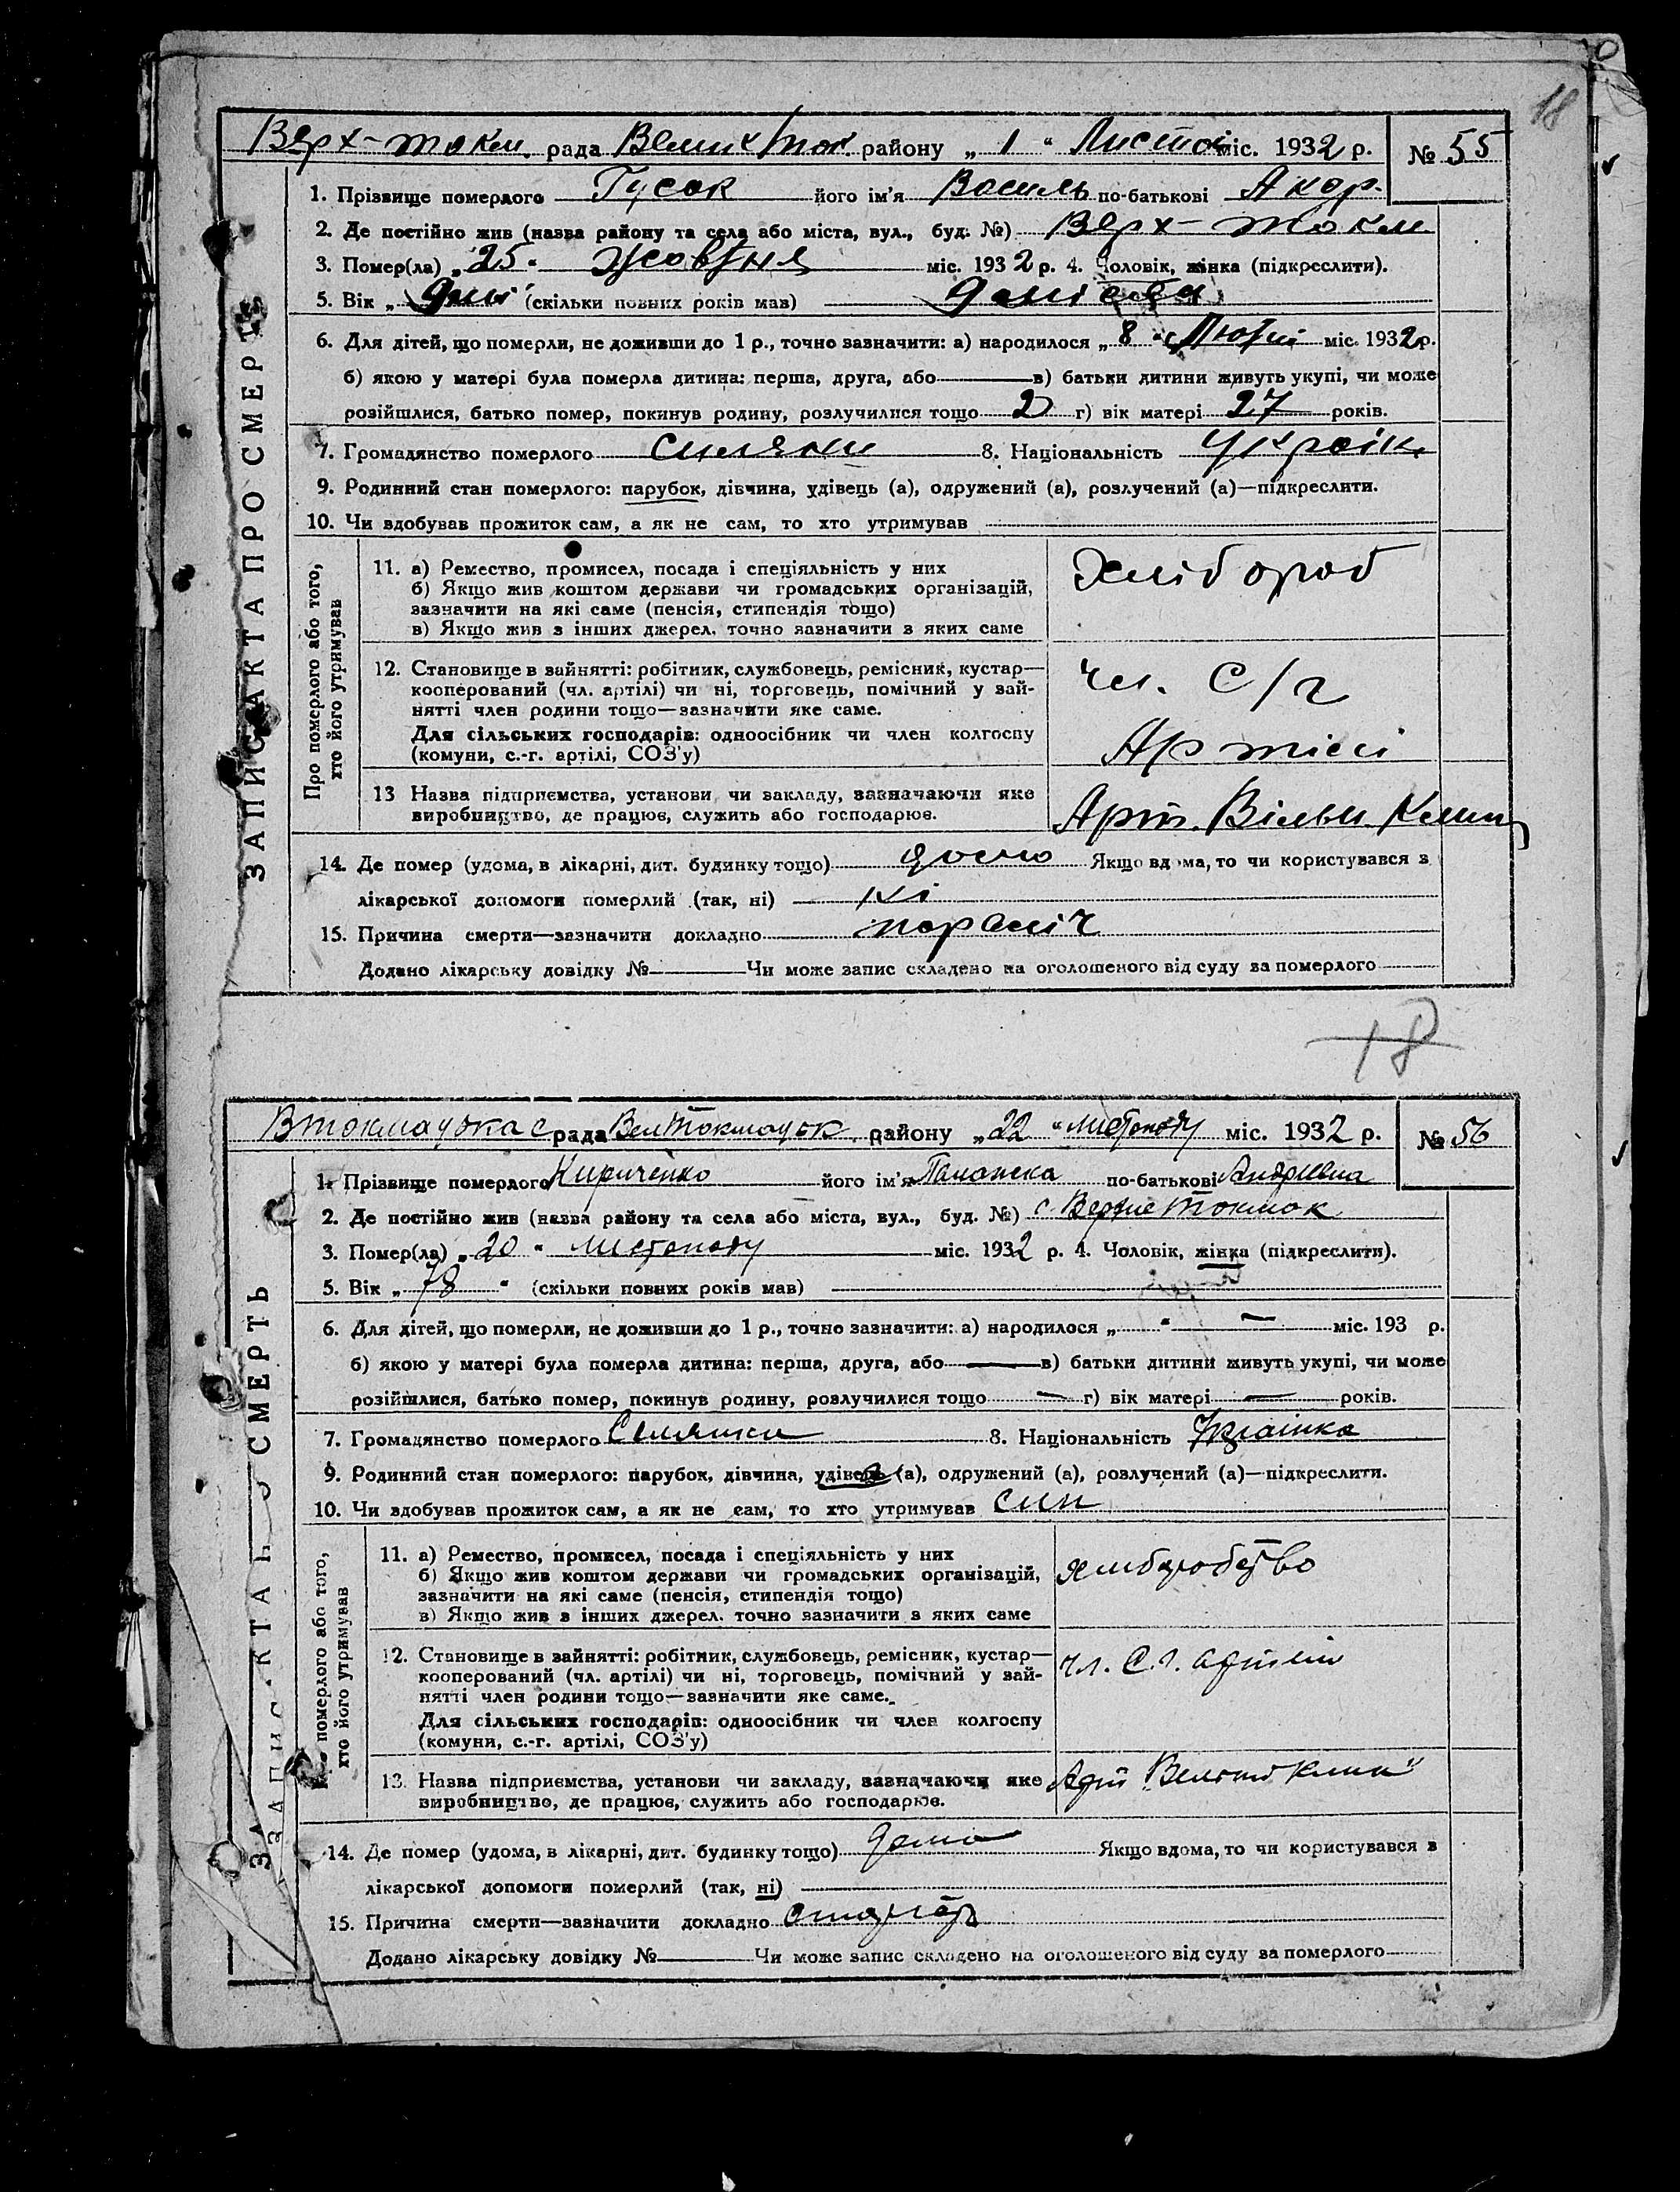 18
Верх-Токм. рада Велик/Ток. району „ 1 “ Листоп міс. 1932 р. № 55
1. Прізвище померлого Гусак його ім'я Василь по-батькові
2. Де постійно жив (назва району та села або міста, вул., буд. №) Верх-Токм
3. Помер(ла) „ 25 “ Жовтня міс. 1932 р. 4. Чоловік, жінка (підкреслити).
5. Вік „ “ (скільки повних років мав) 9 місяця
6. Для дітей, що померли, не доживши до 1 р., точно зазначити: а) народилося „ 8 “ Лютий міс. 1932 р.
б) якою у матері була померла дитина: перша, друга, або — в) батьки дитини живуть укупі, чи може
розійшлися, батько помер, покинув родину, розлучилися тощо 2 г) вік матері 27 років.
7. Громадянство померлого селянин 8. Національність Україн.
9. Родинний стан померлого: парубок, дівчина, удівець (а), одружений (а), розлучений (а)—підкреслити.
10. Чи здобував прожиток сам, а як не сам, то хто утримував
ЗАПИС АКТА ПРО СМЕРТЬ
Про померлого або того,
хто його утримував
11. а) Ремество, промисел, посада і спеціяльність у них
б) Якщо жив коштом держави чи громадських організацій,
зазначити на які саме (пенсія, стипендія тощо)
в) Якщо жив з інших джерел, точно зазначити з яких саме
Хлібороб
12. Становище в зайнятті: робітник, службовець, ремісник, кустар—
кооперований (чл. артілі) чи ні, торговець, помічний у зай-
нятті член родини тощо—зазначити яке саме.
Для сільських господарів: одноосібник чи член колгоспу
(комуни, с.-г. артілі, СОЗ'у)
чл. С/г
Артілі
13 Назва підприємства, установи, чи закладу, зазначаючи яке
виробництво, де працює, служить або господарює.
Арт. Вільн. Клин
14. Де помер (удома, в лікарні, дит. будинку тощо) дома Якщо вдома, то чи користувався з
лікарської допомоги померлий (так, ні) ні
15. Причина смерти—зазначити докладно параліч
Додано лікарську довідку № — Чи може запис складено на оголошеного від суду за померлого
18
ВТокмацька с рада ВелТокмацьк. району „ 22 “ листопаду міс. 1932 р. № 56
1. Прізвище померлого Кириченко його ім'я Паланжка по-батькові Андріевна
2. Де постійно жив (назва району та села або міста, вул., буд. №) с. Верхне Токмак
3. Помер(ла) „ 20 “ листопаду міс. 1932 р. 4. Чоловік, жінка (підкреслити).
5. Вік „ 78 “ (скільки повних років мав)
6. Для дітей, що померли, не доживши до 1 р., точно зазначити: а) народилося „ “ — міс. 193 р.
б) якою у матері була померла дитина: перша, друга, або — в) батьки дитини живуть укупі, чи може
розійшлися, батько помер, покинув родину, розлучилися тощо — г) вік матері — років.
7. Громадянство померлого Селянка 8. Національність Українка
9. Родинний стан померлого: парубок, дівчина, удівець (а), одружений (а), розлучений (а)—підкреслити.
10. Чи здобував прожиток сам, а як не сам, то хто утримував син
ЗАПИС АКТА СМЕРТЬ
померлого або того,
хто його утримував
11. а) Ремество, промисел, посада і спеціяльність у них
б) Якщо жив коштом держави чи громадських організацій,
зазначити на які саме (пенсія, стипендія тощо)
в) Якщо жив з інших джерел, точно зазначити з яких саме
хліборобство
12. Становище в зайнятті: робітник, службовець, ремісник, кустар—
кооперований (чл. артілі) чи ні, торговець, помічний у зай-
нятті член родини тощо—зазначити яке саме.
Для сільських господарів: одноосібник чи член колгоспу
(комуни, с.-г. артілі, СОЗ'у)
чл. С.г. артілі
13. Назва підприємства, установи чи закладу, зазначаючи яке
виробництво, де працює, служить або господарює.
Арт Клин"
14. Де помер (удома, в лікарні, дит. будинку тощо) дома Якщо вдома, то чи користувався з
лікарської допомоги померлий (так, ні)
15. Причина смерти—зазначити докладно
Додано лікарську довідку № — Чи може запис складено на оголошеного від суду за померлого